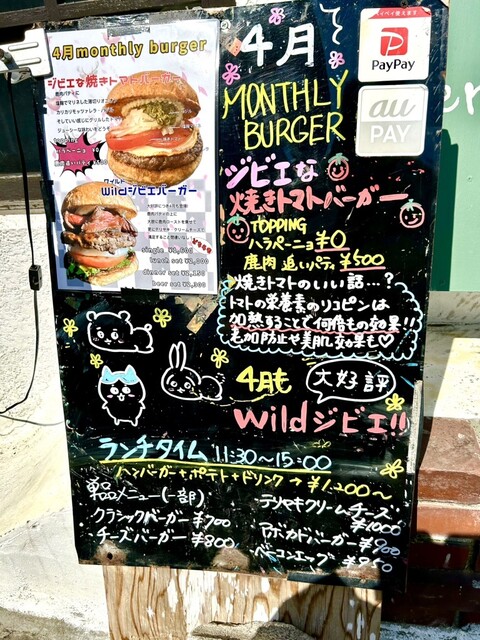 4月monthly burger
ジビエな焼きトマトバーガー
鹿肉パティに
ワイルド
wildジビエバーガー
single ¥1,600
lunch set ¥2,000
dinner set ¥2,150
beer set ¥2,300
PayPay
au
PAY
4月
MONTHLY
BURGER
ジビエな
焼きトマトバーガー
TOPPING
ハラペーニョ ¥0
鹿肉 追いパティ ¥500
焼きトマトのいい話…?
トマトの栄養素のリコピンは
加熱することで何倍もの効果!!
老加防止や美肌効果も♡
4月も
大好評
wildジビエ!!
ランチタイム 11:30〜15:00
ハンバーガー+ポテト+ドリンク → ¥1,200〜
単品メニュー(一部)
クラシックバーガー ¥700
チーズバーガー ¥800
テリヤキクリームチーズ
¥1000
アボカドバーガー ¥900
ベーコンエッグ ¥950